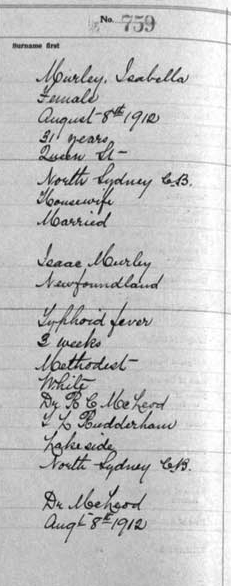 No. 759
Surname first
Murley, Isabella
Female
August 8th 1912
31 years
Queen St
North Sydney C.B.
Housewife
Married
Isaac Murley
Newfoundland
Typhoid fever
3 weeks
Methodist
White
Dr R C McLeod
L Rudderham
Lakeside
North Sydney C.B.
Dr McLeod
Augt 8th 1912